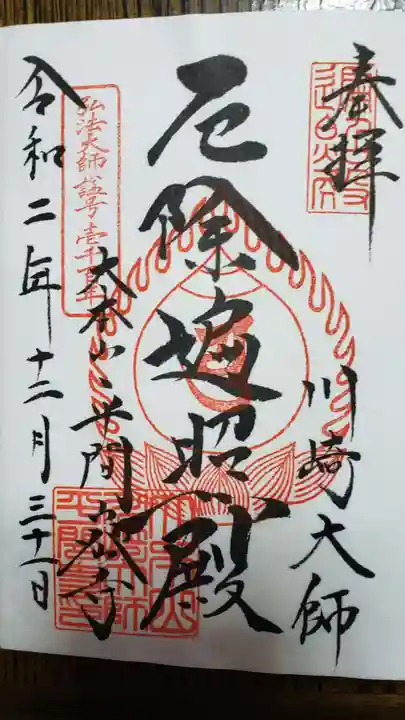 奉拝
川崎大師
厄除遍照殿
大本山平間寺
弘法大師諡号壱千百年
令和二年十二月三十一日